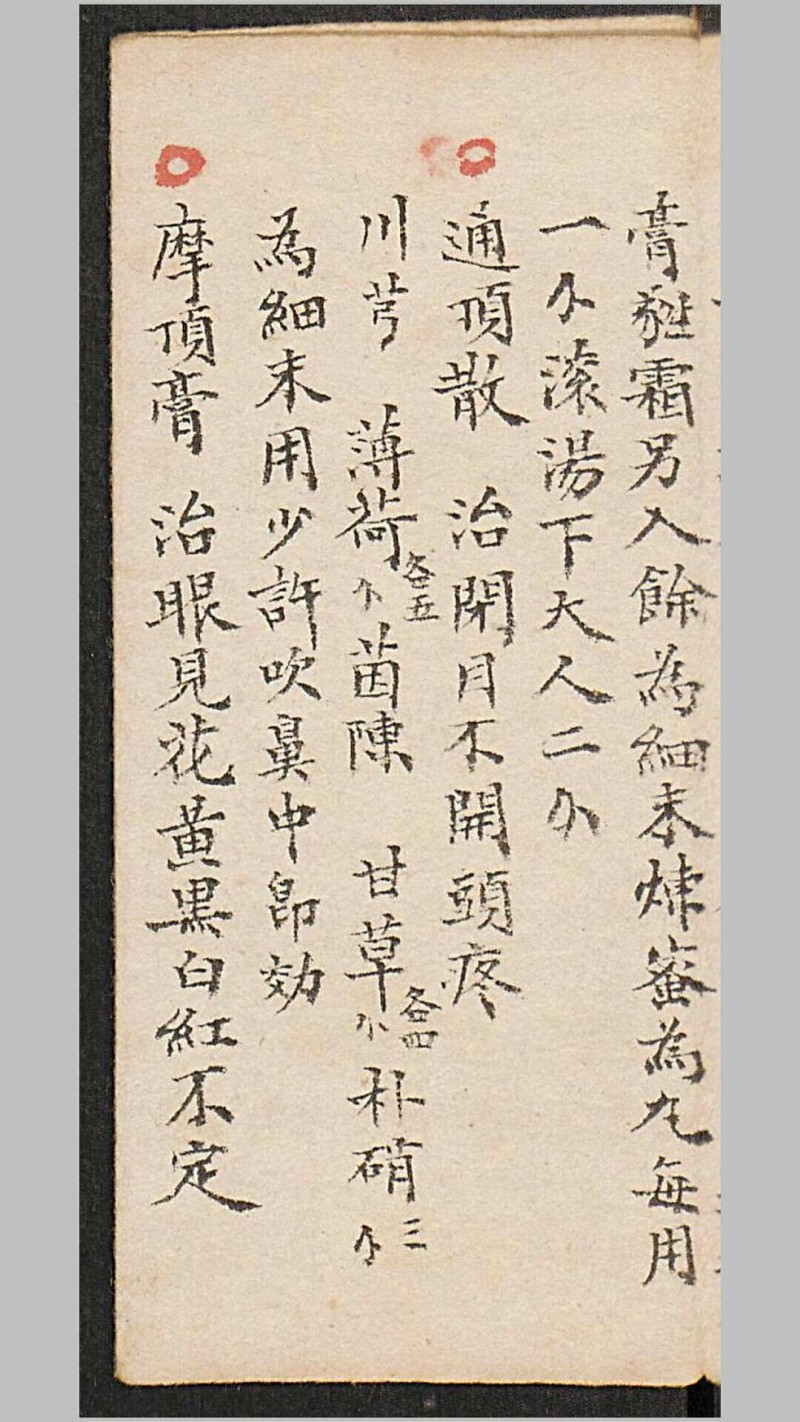 膏霜另入餘為細末煉蜜為丸每用
一个滚湯下大人二个
通頂散 治閉目不開頭疼
川芎 薄荷各五个茵陳 甘草各四个朴硝三个
為細末用少許吹鼻中即効
摩頂膏 治眼見花黃黑白紅不定